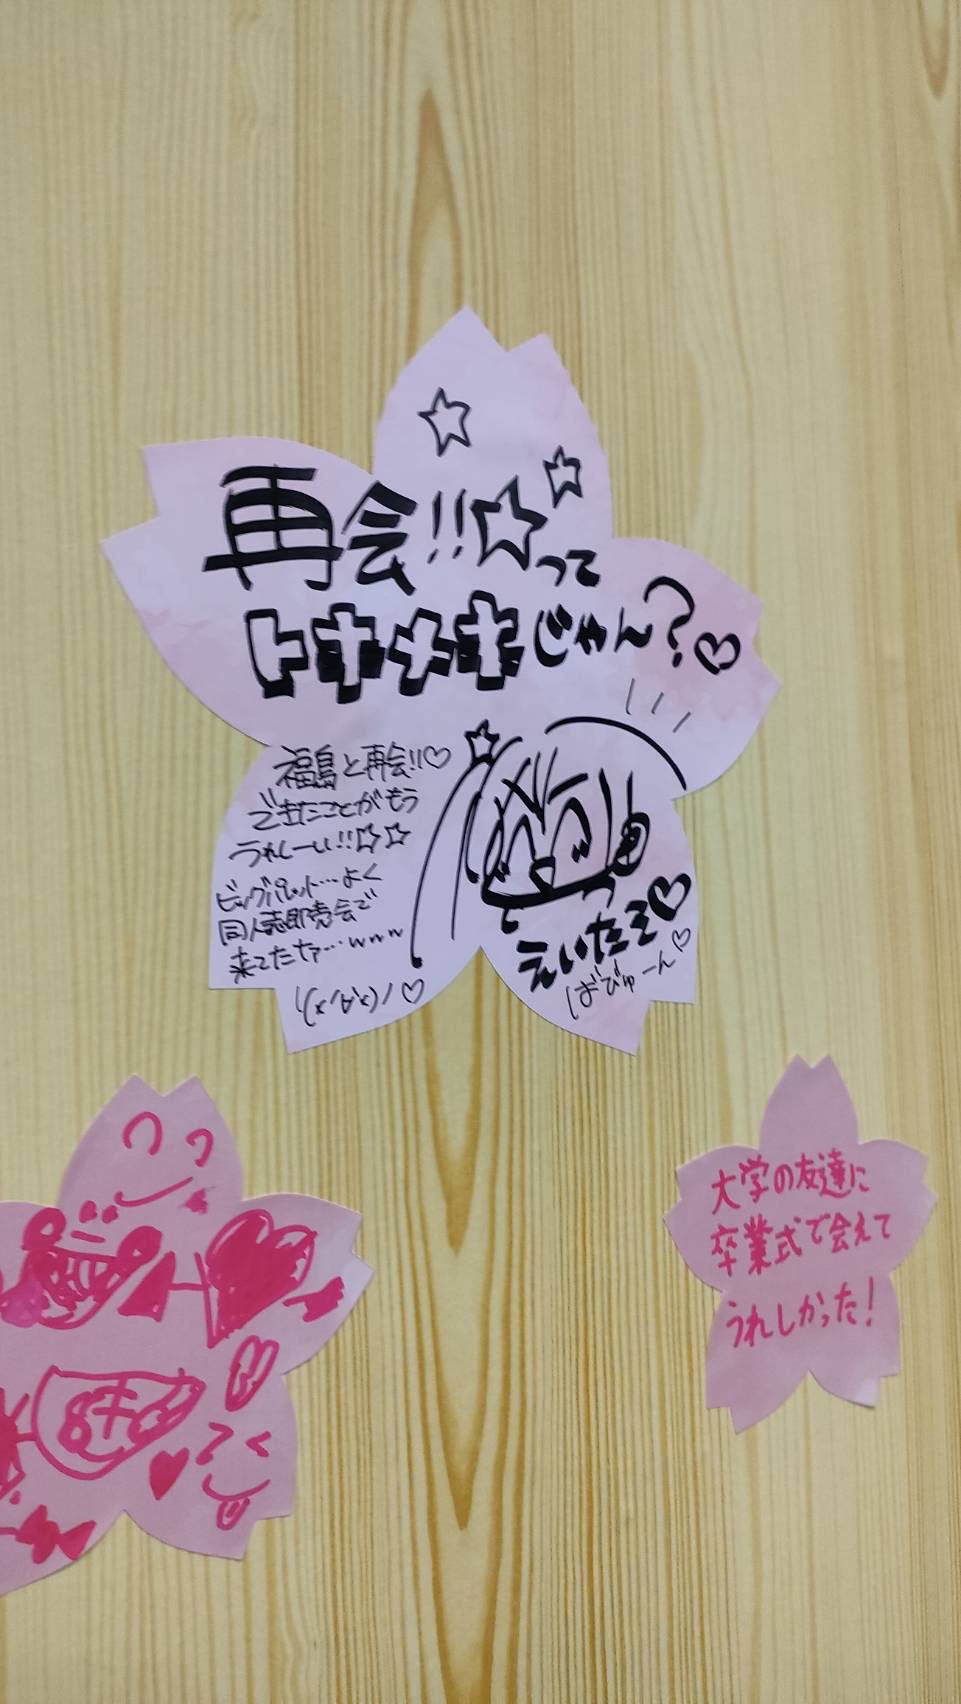 再会!!☆って
トキメキじゃん?♡
福島と再会!!♡
できたことがもう
うれしーい!!☆☆
ビッグパレット…よく
同人誌即売会で
来てたなァ…www
えいたそ♡
ばびゅーん♡
大学の友達に
卒業式で会えて
うれしかった!